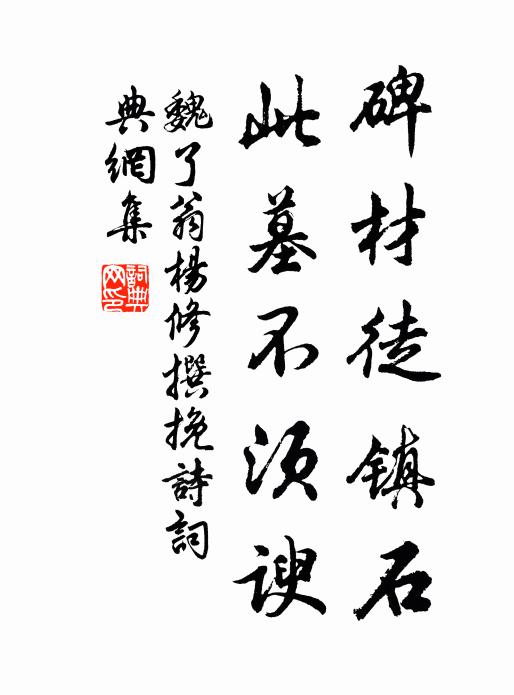 碑材徒镇石
此墓不须谀
魏了翁楊修撰挽詩詞
典網集
詞典網印